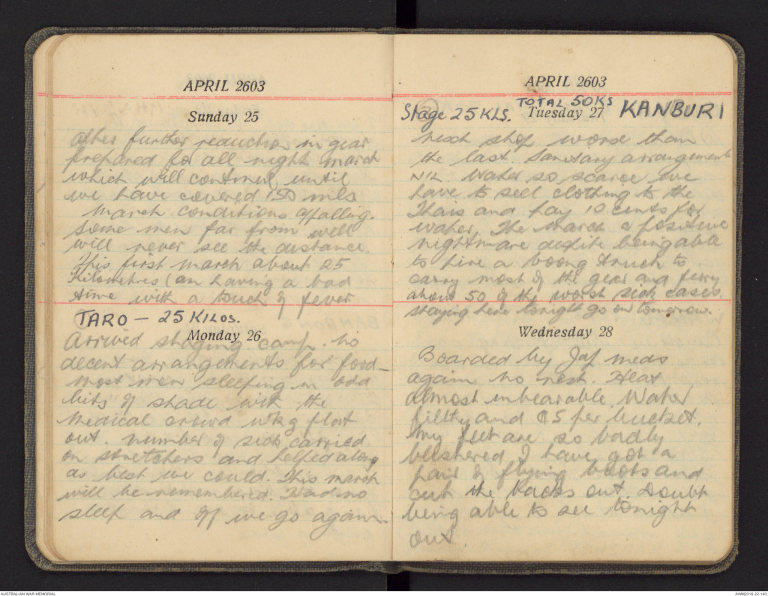 APRIL 2603
Sunday 25
After further reduction in gear
prepared for all night march
which will continue until
we have covered 150 mls
March conditions appalling.
Some men far from well
will never see the distance.
This first march about 25
Kilometres (am having a bad
time with a touch of fever
TARO - 25 KILOS.
Monday 26
Arrived staging camp. no
decent arrangements for food -
most men sleeping in odd
bits of shade with the
medical crowd wkg flat
out. number of sick carried
on stretchers and helped along
as best we could. This march
will be remembered. Had no
sleep and off we go again.
APRIL 2603
Stage 25 KLS. TOTAL 50KS KANBURI
Tuesday 27
next stop worse than
the last. Sanitary arrangements
NIL. Water so scarce we
have to sell clothing to the
Thais and pay 10 cents for
water. The march a positive
nightmare despite being able
to hire a boong truck to
carry most of the gear and ferry
about 50 of the worst sick cases
staying here tonight go on tomorrow.
Wednesday 28
Boarded by Jap meds
again no rest. Heat
almost unbearable. Water
filthy and 5 per bucket.
My feet are so badly
blistered I have got a
pair of flying boots and
cut the backs out. Doubt
being able to see tonight
out.
AUSTRALIAN WAR MEMORIAL